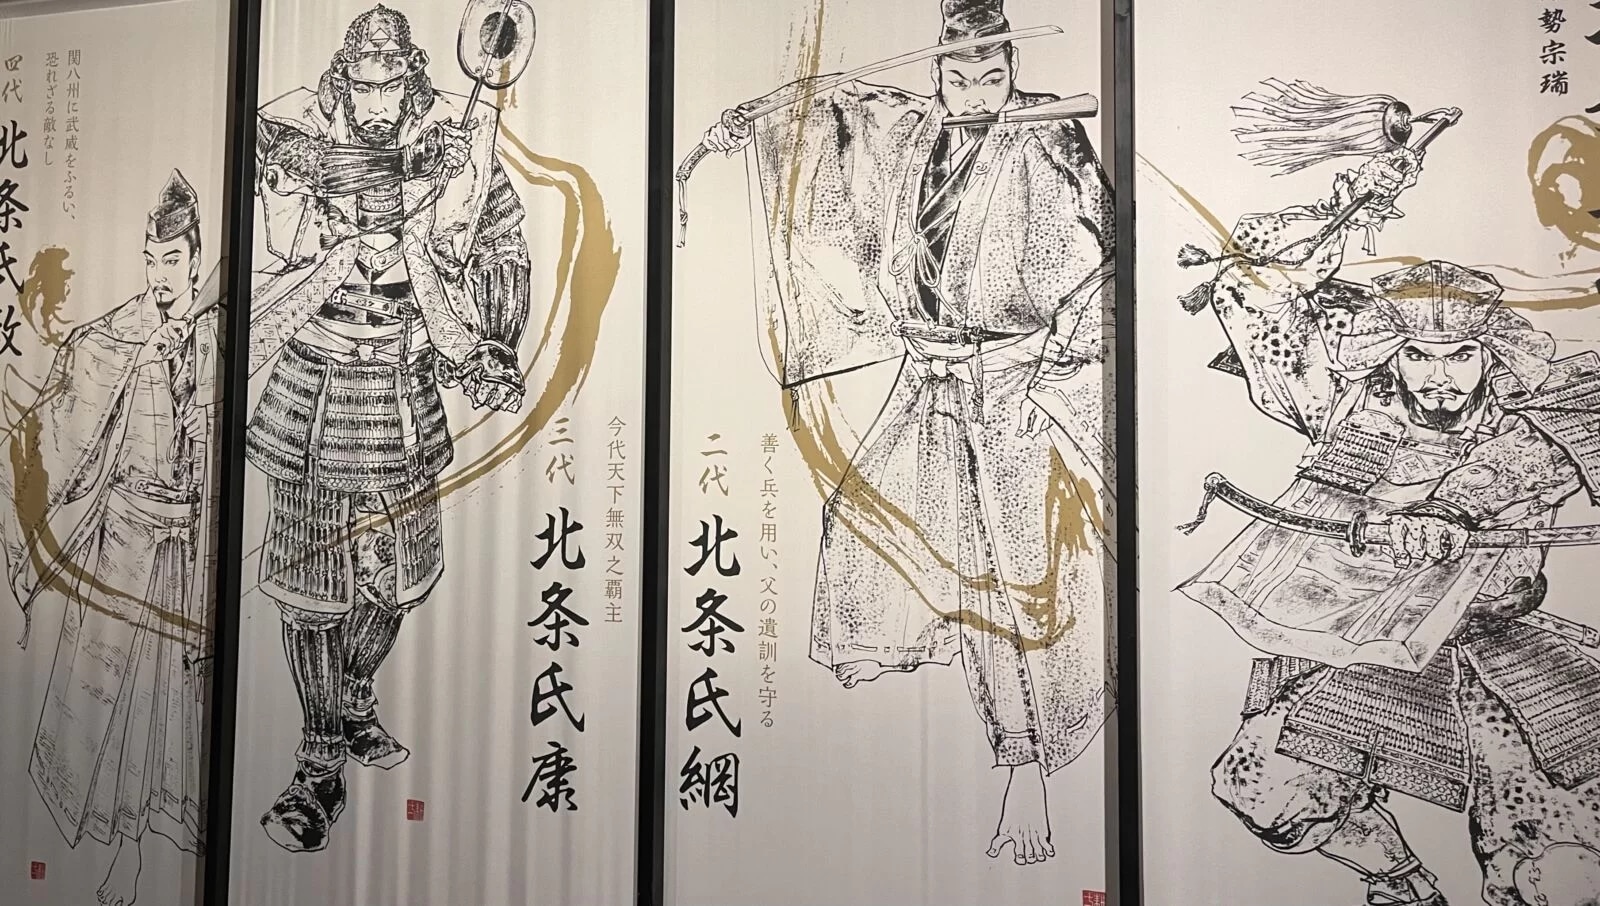 勢宗瑞
善く兵を用い、父の遺訓を守る
二代
北条氏綱
今代天下無双之覇主
三代
北条氏康
関八州に武威をふるい、
恐れざる敵なし
四代
北条氏政